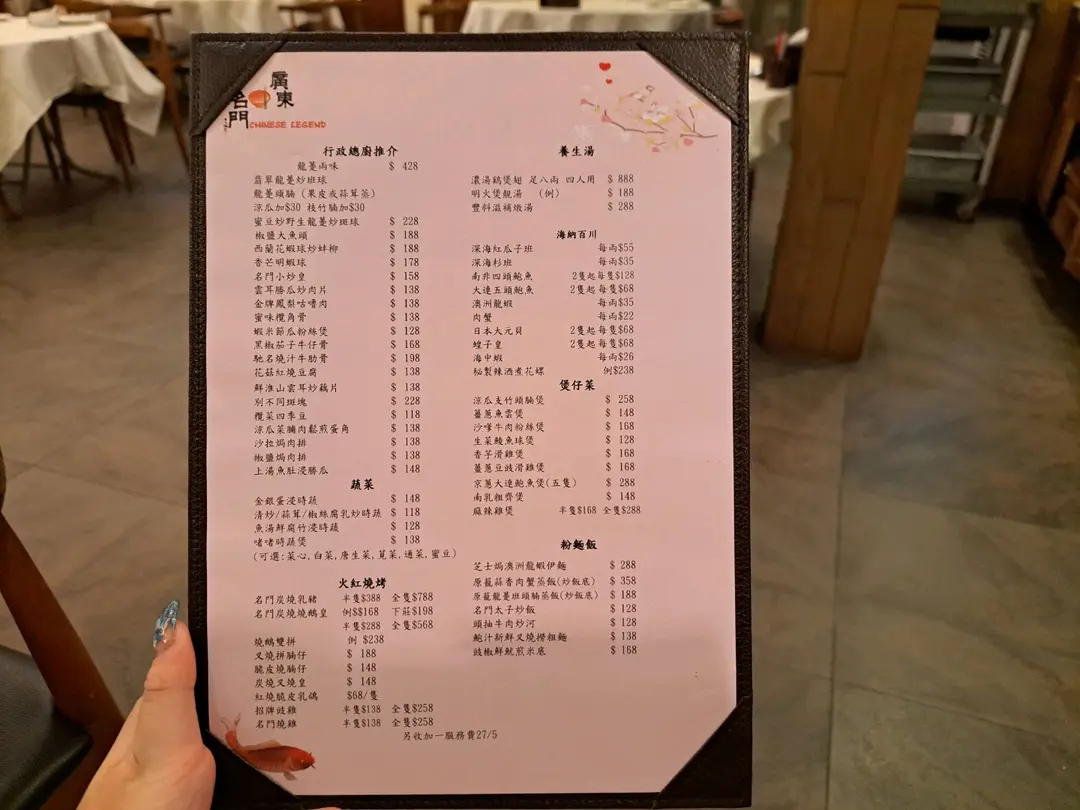 廣東
名門
CHINESE LEGEND
行政總廚推介
龍躉兩味 $ 428
翡翠龍躉炒班球
龍躉頭腩 (果皮或蒜茸蒸)
涼瓜加$30 枝竹腩加$30
蜜豆炒野生龍躉炒斑球 $ 228
椒鹽大魚頭 $ 188
西蘭花蝦球炒蚌柳 $ 188
香芒明蝦球 $ 178
名門小炒皇 $ 158
雲耳勝瓜炒肉片 $ 138
金牌鳳梨咕嚕肉 $ 138
蜜味欖角骨 $ 138
蝦米節瓜粉絲煲 $ 128
黑椒茄子牛仔骨 $ 168
馳名燒汁牛肋骨 $ 198
花菇紅燒豆腐 $ 138
鮮淮山雲耳炒藕片 $ 138
別不同斑塊 $ 228
欖菜四季豆 $ 118
涼瓜菜脯肉鬆煎蛋角 $ 138
沙拉焗肉排 $ 138
椒鹽焗肉排 $ 138
上湯魚肚浸勝瓜 $ 148
蔬菜
金銀蛋浸時蔬 $ 148
清炒/蒜茸/椒絲腐乳炒時蔬 $ 118
魚湯鮮腐竹浸時蔬 $ 128
啫啫時蔬煲 $ 138
(可選:菜心,白菜,唐生菜,莧菜,通菜,蜜豆)
火紅燒烤
名門炭燒乳豬 半隻$388 全隻$788
名門炭燒燒鵝皇 例$$168 下莊$198
半隻$288 全隻$568
燒鵝雙拼 例 $238
叉燒拼腩仔 $ 188
脆皮燒腩仔 $ 148
炭燒叉燒皇 $ 148
紅燒脆皮乳鴿 $68/隻
招牌豉雞 半隻$138 全隻$258
名門燒雞 半隻$138 全隻$258
養生湯
濃湯鷄煲翅 足八兩 四人用 $ 888
明火煲靚湯 (例) $ 188
豐料滋補燉湯 $ 288
海納百川
深海紅瓜子班 每兩$55
深海杉班 每兩$35
南非四頭鮑魚 2隻起每隻$128
大連五頭鮑魚 2隻起每隻$68
澳洲龍蝦 每兩$35
肉蟹 每兩$22
日本大元貝 2隻起每隻$68
蟶子皇 2隻起每隻$68
海中蝦 每兩$26
秘製辣酒煮花螺 例$238
煲仔菜
涼瓜支竹頭腩煲 $ 258
薑蔥魚雲煲 $ 148
沙嗲牛肉粉絲煲 $ 168
生菜鯪魚球煲 $ 128
香芋滑雞煲 $ 168
薑蔥豆豉滑雞煲 $ 168
京蔥大連鮑魚煲(五隻) $ 288
南乳粗齋煲 $ 148
麻辣雞煲 半隻$168 全隻$288
粉麵飯
芝士焗澳洲龍蝦伊麵 $ 288
原籠蒜香肉蟹蒸飯(炒飯底) $ 358
原籠龍躉班頭腩蒸飯(炒飯底) $ 188
名門太子炒飯 $ 128
頭抽牛肉炒河 $ 128
鮑汁新鮮叉燒撈粗麵 $ 138
豉椒鮮魷煎米底 $ 168
另收加一服務費27/5